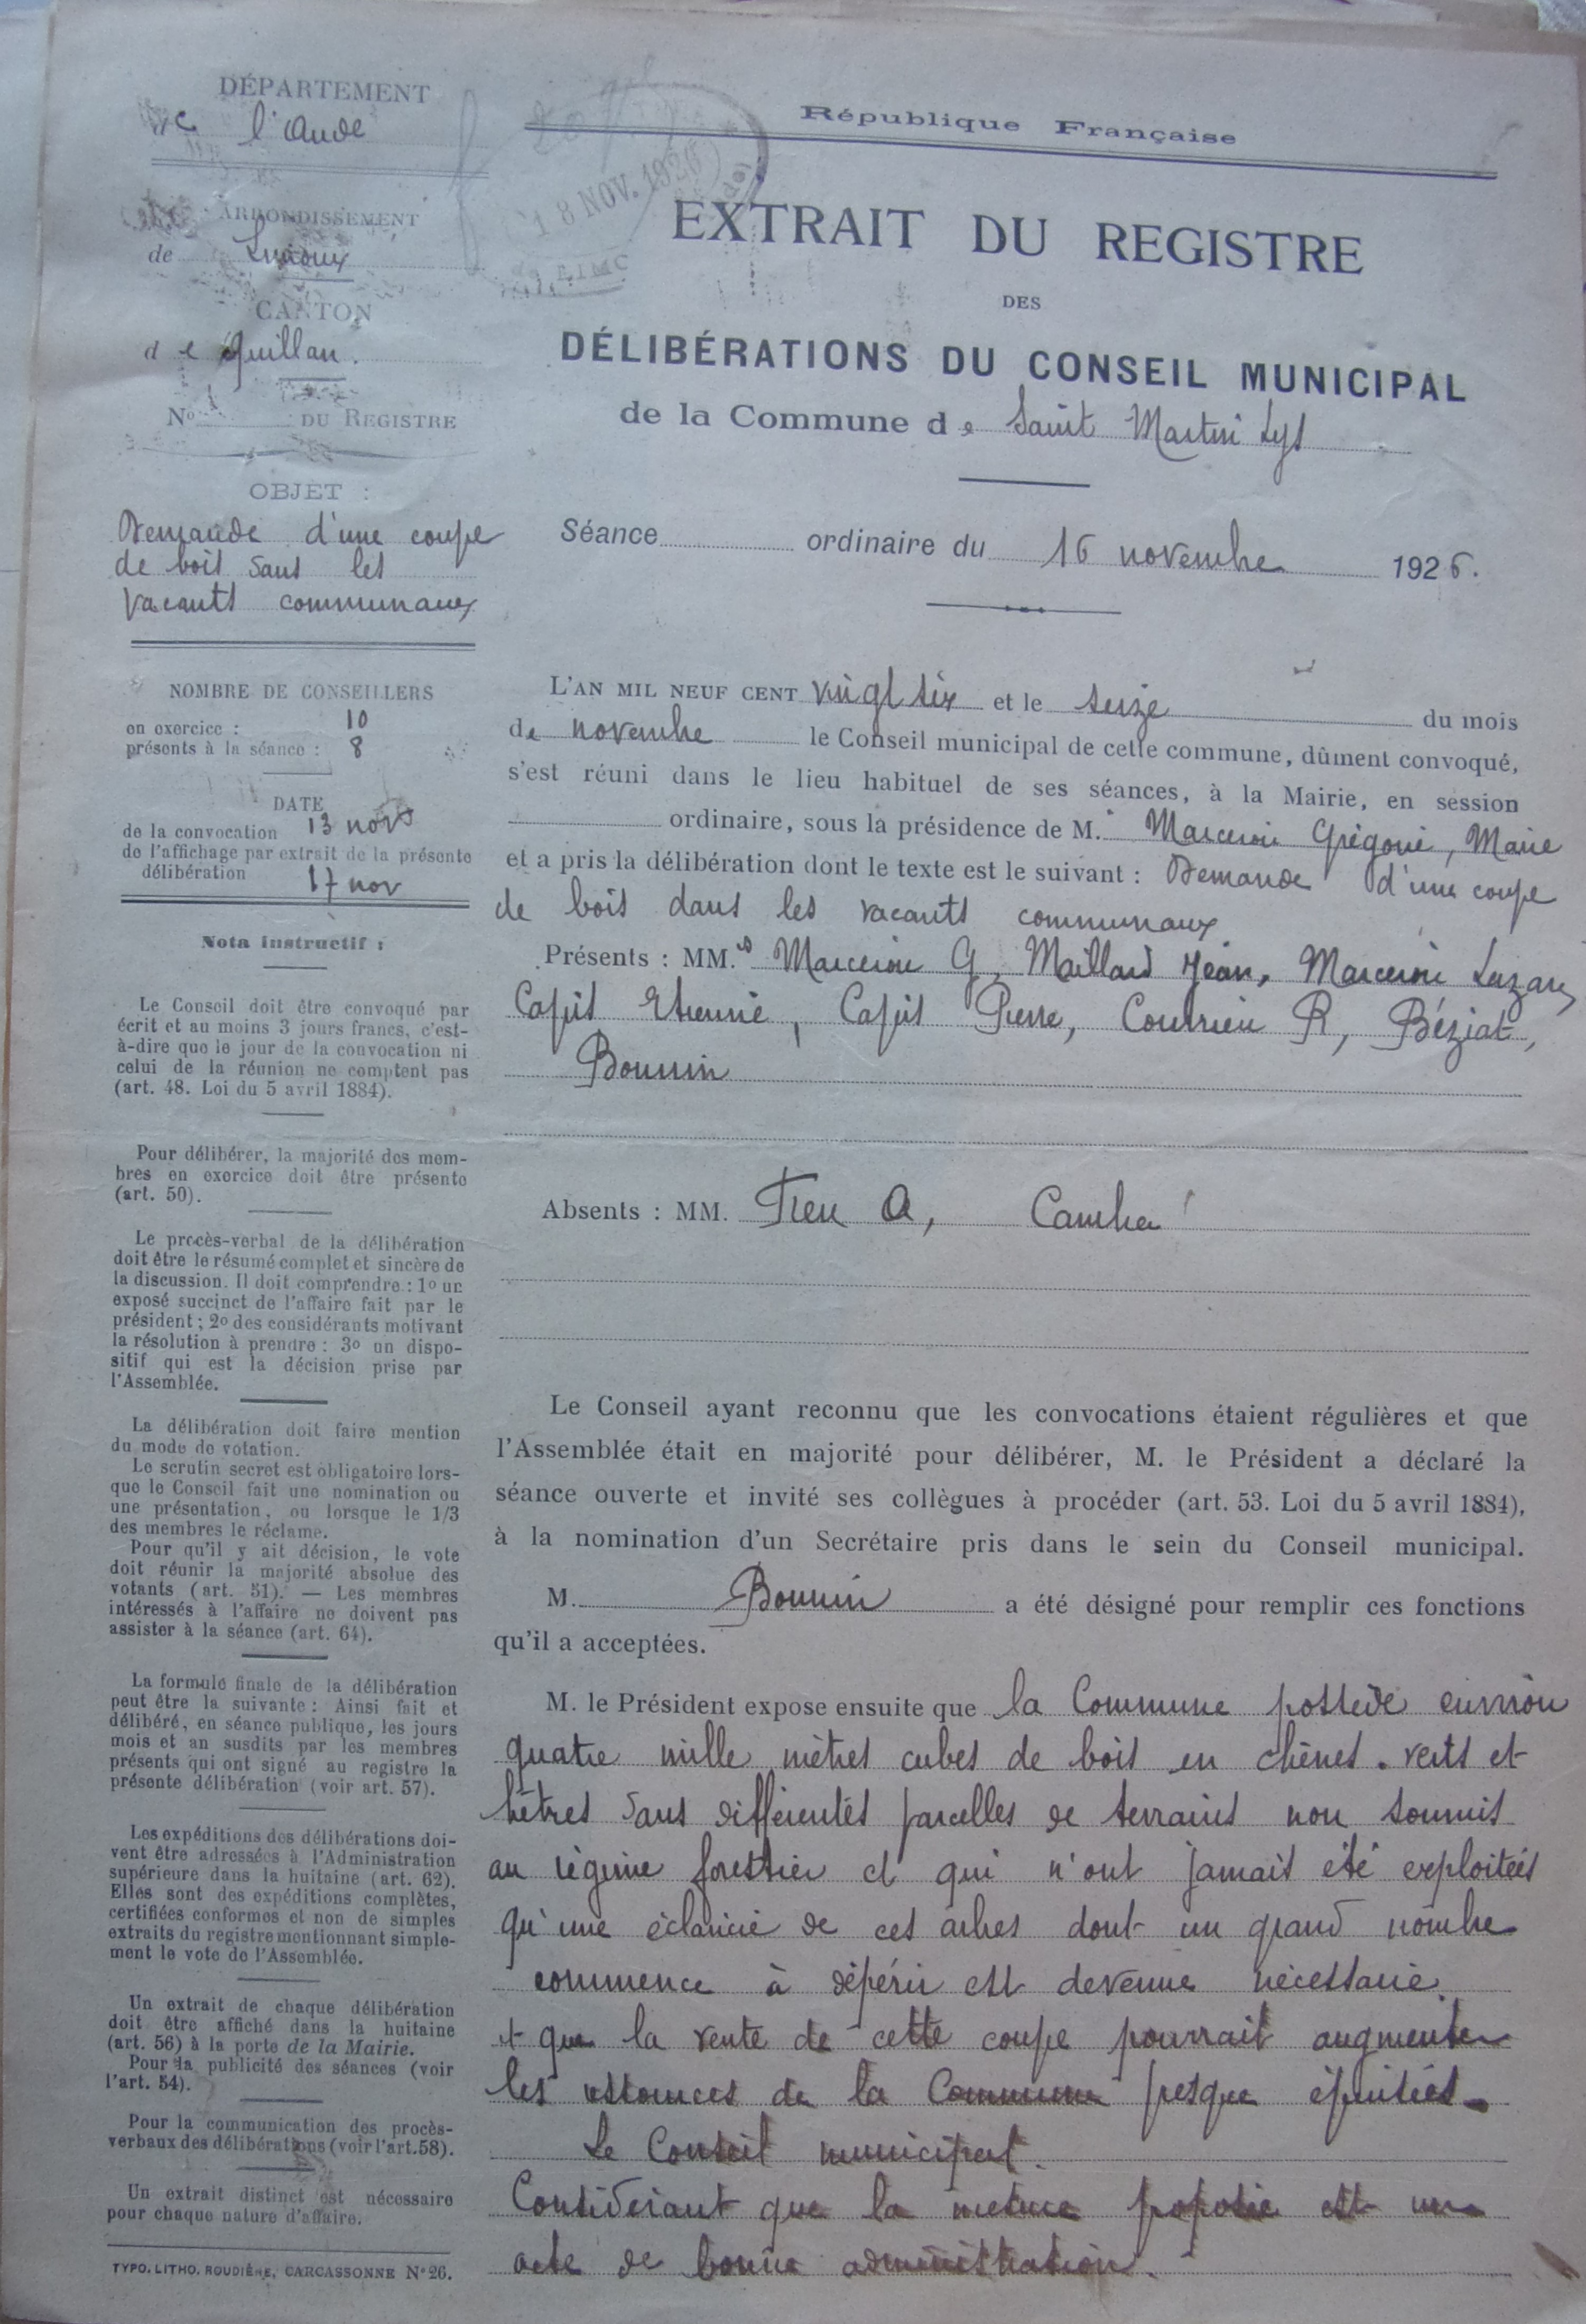 DÉPARTEMENT
de l'Aude
ARRONDISSEMENT
de Limoux
CANTON
de Quillan.
No DU REGISTRE
OBJET :
Demande d'une coupe
de bois dans les
vacants communaux
NOMBRE DE CONSEILLERS
en exercice : 10
présents à la séance : 8
DATE
de la convocation 13 nov
de l'affichage par extrait de la présente
délibération 17 nov
Nota instructif :
Le Conseil doit être convoqué par
écrit et au moins 3 jours francs, c'est-
à-dire que le jour de la convocation ni
celui de la réunion ne comptent pas
(art. 48. Loi du 5 avril 1884).
Pour délibérer, la majorité des mem-
bres en exercice doit être présente
(art. 50).
Le procès-verbal de la délibération
doit être le résumé complet et sincère de
la discussion. Il doit comprendre : 1o un
exposé succinct de l'affaire fait par le
président ; 2o des considérants motivant
la résolution à prendre : 3o un dispo-
sitif qui est la décision prise par
l'Assemblée.
La délibération doit faire mention
du mode de votation.
Le scrutin secret est obligatoire lors-
que le Conseil fait une nomination ou
une présentation, ou lorsque le 1/3
des membres le réclame.
Pour qu'il y ait décision, le vote
doit réunir la majorité absolue des
votants (art. 51). — Les membres
intéressés à l'affaire ne doivent pas
assister à la séance (art. 64).
La formule finale de la délibération
peut être la suivante : Ainsi fait et
délibéré, en séance publique, les jours
mois et an susdits par les membres
présents qui ont signé au registre la
présente délibération (voir art. 57).
Les expéditions des délibérations doi-
vent être adressées à l'Administration
supérieure dans la huitaine (art. 62).
Elles sont des expéditions complètes,
certifiées conformes et non de simples
extraits du registre mentionnant simple-
ment le vote de l'Assemblée.
Un extrait de chaque délibération
doit être affiché dans la huitaine
(art. 56) à la porte de la Mairie.
Pour la publicité des séances (voir
l'art. 54).
Pour la communication des procès-
verbaux des délibérations (voir l'art. 58).
Un extrait distinct est nécessaire
pour chaque nature d'affaire.
TYPO. LITHO. ROUDIÈRE, CARCASSONNE N° 26.
République Française
18 NOV. 1926
EXTRAIT DU REGISTRE
DES
DÉLIBÉRATIONS DU CONSEIL MUNICIPAL
de la Commune de Saint Martin Lys
Séance ordinaire du 16 novembre 1926.
L'AN MIL NEUF CENT vingt six et le seize du mois
de novembre le Conseil municipal de cette commune, dûment convoqué,
s'est réuni dans le lieu habituel de ses séances, à la Mairie, en session
ordinaire, sous la présidence de M. Marceron Grégoire, Maire
et a pris la délibération dont le texte est le suivant : Demande d'une coupe
de bois dans les vacants communaux
Présents : MM. Marceron G, Maillard Jean, Marceron Lazare,
Capis Etienne, Capis Pierre, Courrieu R, Béziat,
Bounin
Absents : MM. A,
Le Conseil ayant reconnu que les convocations étaient régulières et que
l'Assemblée était en majorité pour délibérer, M. le Président a déclaré la
séance ouverte et invité ses collègues à procéder (art. 53. Loi du 5 avril 1884),
à la nomination d'un Secrétaire pris dans le sein du Conseil municipal.
M. Bounin a été désigné pour remplir ces fonctions
qu'il a acceptées.
M. le Président expose ensuite que la Commune possède environ
quatre mille mètres cubes de bois en chênes. verts et
hêtres dans différentes parcelles de terrains non soumis
au régime forestier et qui n'ont jamais été exploitées
qu'une éclaircie de ces arbres dont un grand nombre
commence à dépérir est devenue nécessaire.
et que la vente de cette coupe pourrait augmenter
les ressources de la Commune presque épuisées.
Le Conseil municipal.
Considérant que la mesure proposée est un
acte de bonne administration.